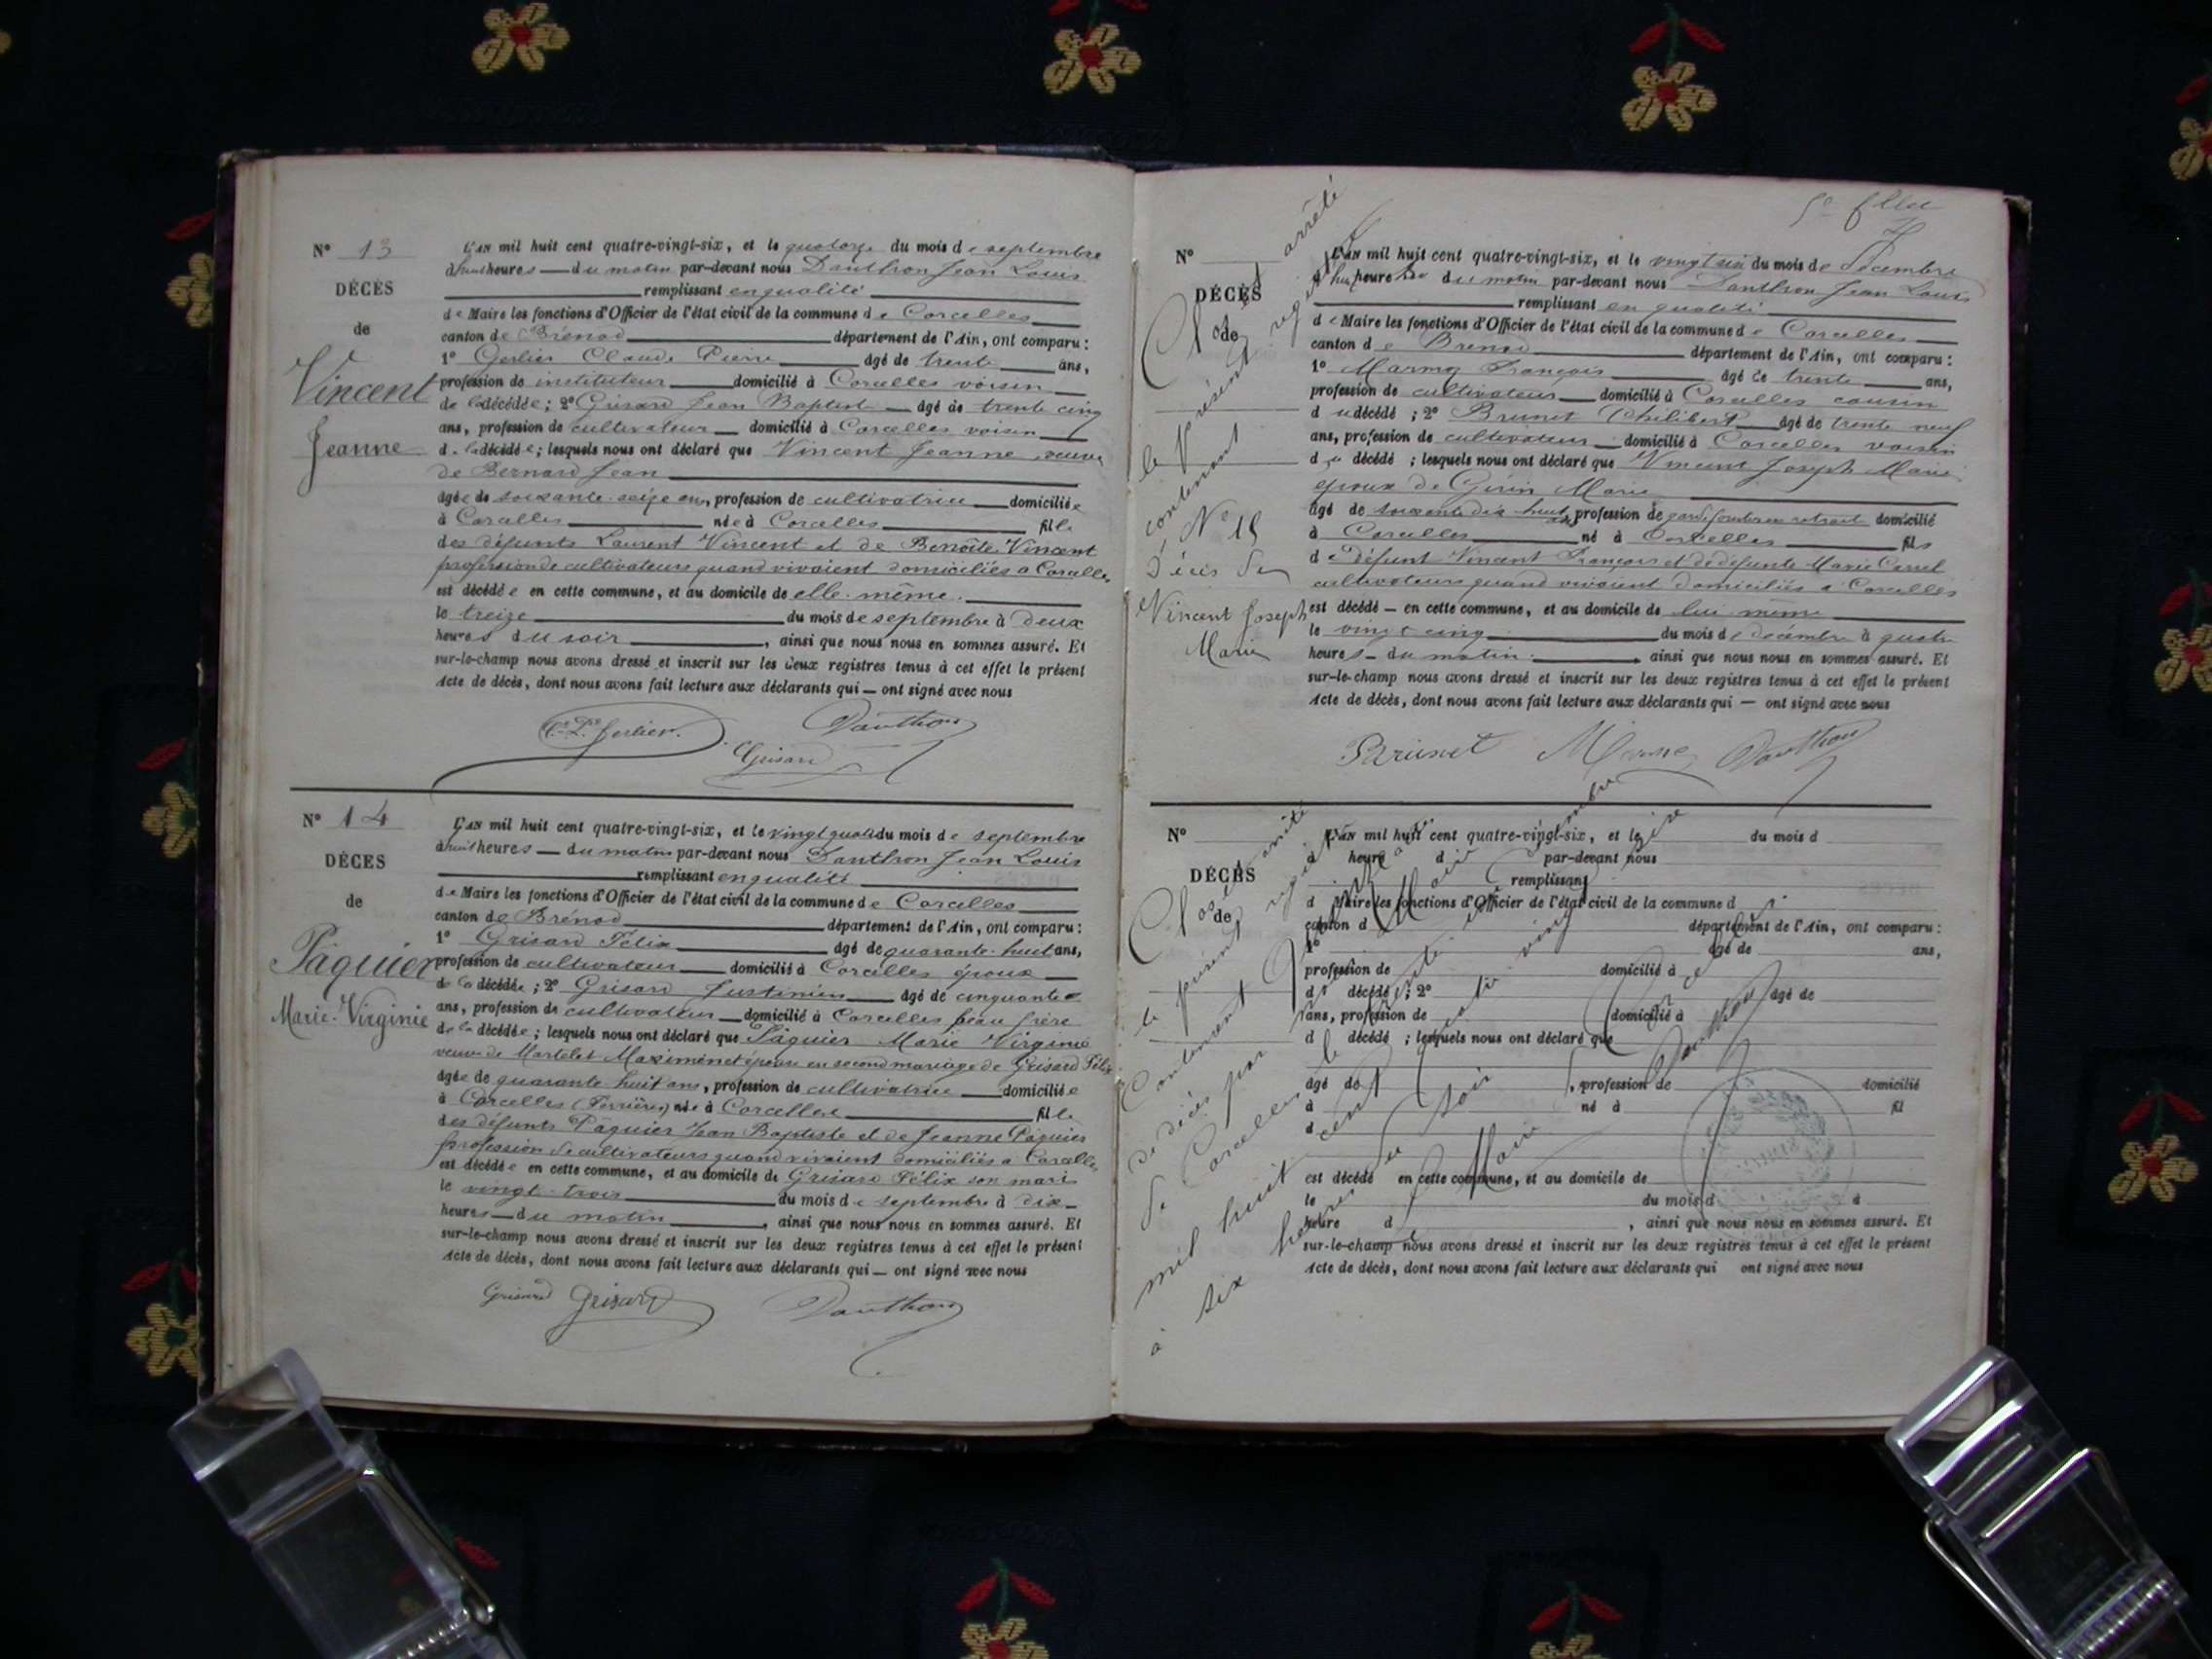 N° 13
DÉCÈS
de
Vincent
Jeanne
L'AN mil huit cent quatre-vingt-six, et le quatorze du mois de septembre
à huit heures du matin par-devant nous Danthon Jean Louis
remplissant en qualité
de Maire les fonctions d'Officier de l'état civil de la commune de Corcelles
canton de Brénod département de l'Ain, ont comparu :
1° Gerlier Claude Pierre âgé de trente ans,
profession de instituteur domicilié à Corcelles voisin
de la décédée ; 2° Grisard Jean Baptiste âgé de trente cinq
ans, profession de cultivateur domicilié à Corcelles voisin
de la décédée ; lesquels nous ont déclaré que Vincent Jeanne veuve
de Bernard Jean
âgée de soixante-seize ans, profession de cultivatrice domiciliée
à Corcelles née à Corcelles fille
des défunts Laurent Vincent et de Benoîte Vincent
profession de cultivateurs quand vivaient domiciliés à Corcelles
est décédée en cette commune, et au domicile de elle-même.
le treize du mois de septembre à deux
heures du soir, ainsi que nous nous en sommes assuré. Et
sur-le-champ nous avons dressé et inscrit sur les deux registres tenus à cet effet le présent
Acte de décès, dont nous avons fait lecture aux déclarants qui — ont signé avec nous
C. P. Gerlier. Danthon
Grisard
N° 14
DÉCÈS
de
Pâquier
Marie-Virginie
L'AN mil huit cent quatre-vingt-six, et le vingt quatre du mois de septembre
à huit heures du matin par-devant nous Danthon Jean Louis
remplissant en qualité
de Maire les fonctions d'Officier de l'état civil de la commune de Corcelles
canton de Brénod département de l'Ain, ont comparu :
1° Grisard Félix âgé de quarante-huit ans,
profession de cultivateur domicilié à Corcelles époux
de la décédée ; 2° Grisard Justinien âgé de cinquante
ans, profession de cultivateur domicilié à Corcelles beau frère
de la décédée ; lesquels nous ont déclaré que Pâquier Marie Virginie
veuve de Martelet Maximin et épouse en second mariage de Grisard Félix
âgée de quarante-huit ans, profession de cultivatrice domiciliée
à Corcelles (Ferrières) née à Corcelles fille
des défunts Pâquier Jean Baptiste et de Jeanne Pâquier
profession de cultivateurs quand vivaient domiciliés à Corcelles
est décédée en cette commune, et au domicile de Grisard Félix son mari
le vingt-trois du mois de septembre à dix
heures du matin, ainsi que nous nous en sommes assuré. Et
sur-le-champ nous avons dressé et inscrit sur les deux registres tenus à cet effet le présent
Acte de décès, dont nous avons fait lecture aux déclarants qui — ont signé avec nous
Grisard Grisard Danthon
N°
DÉCÈS
de
N° 15
Décès de
Vincent Joseph
Marie
L'AN mil huit cent quatre-vingt-six, et le vingt six du mois de décembre
à huit heures du matin par-devant nous Danthon Jean Louis
remplissant en qualité
de Maire les fonctions d'Officier de l'état civil de la commune de Corcelles
canton de Brenod département de l'Ain, ont comparu :
1° Marmy François âgé de trente ans,
profession de cultivateur domicilié à Corcelles cousin
du décédé ; 2° Brunet Philibert âgé de trente neuf
ans, profession de cultivateur domicilié à Corcelles voisin
du décédé ; lesquels nous ont déclaré que Vincent Joseph Marie
époux de Girin Marie
âgé de soixante dix huit ans, profession de garde forestier retraité domicilié
à Corcelles né à Corcelles fils
de défunt Vincent François et de défunte Marie Carrel
cultivateurs quand vivaient domiciliés à Corcelles
est décédé — en cette commune, et au domicile de lui même
le vingt cinq du mois de décembre à quatre
heures du matin, ainsi que nous nous en sommes assuré. Et
sur-le-champ nous avons dressé et inscrit sur les deux registres tenus à cet effet le présent
Acte de décès, dont nous avons fait lecture aux déclarants qui — ont signé avec nous
Brunet Danthon
Clos et arrêté
le présent registre
contenant
N°
DÉCÈS
de
L'AN mil huit cent quatre-vingt-six, et le du mois d
à heure d par-devant nous
remplissant
d Maire les fonctions d'Officier de l'état civil de la commune d
canton d département de l'Ain, ont comparu :
1° âgé de ans,
profession de domicilié à
d décédé ; 2° âgé de
ans, profession de domicilié à
d décédé ; lesquels nous ont déclaré que
âgé de , profession de domicilié
à né à fil
d
est décédé en cette commune, et au domicile de
le du mois d à
heure d , ainsi que nous nous en sommes assuré. Et
sur-le-champ nous avons dressé et inscrit sur les deux registres tenus à cet effet le présent
Acte de décès, dont nous avons fait lecture aux déclarants qui ont signé avec nous
Clos et arrêté
le présent registre
Contenant quinze actes
de décès par nous Maire
de Corcelles le trente et un décembre
mil huit cent quatre vingt six
à six heures du soir
Le Maire de Corcelles
Danthon